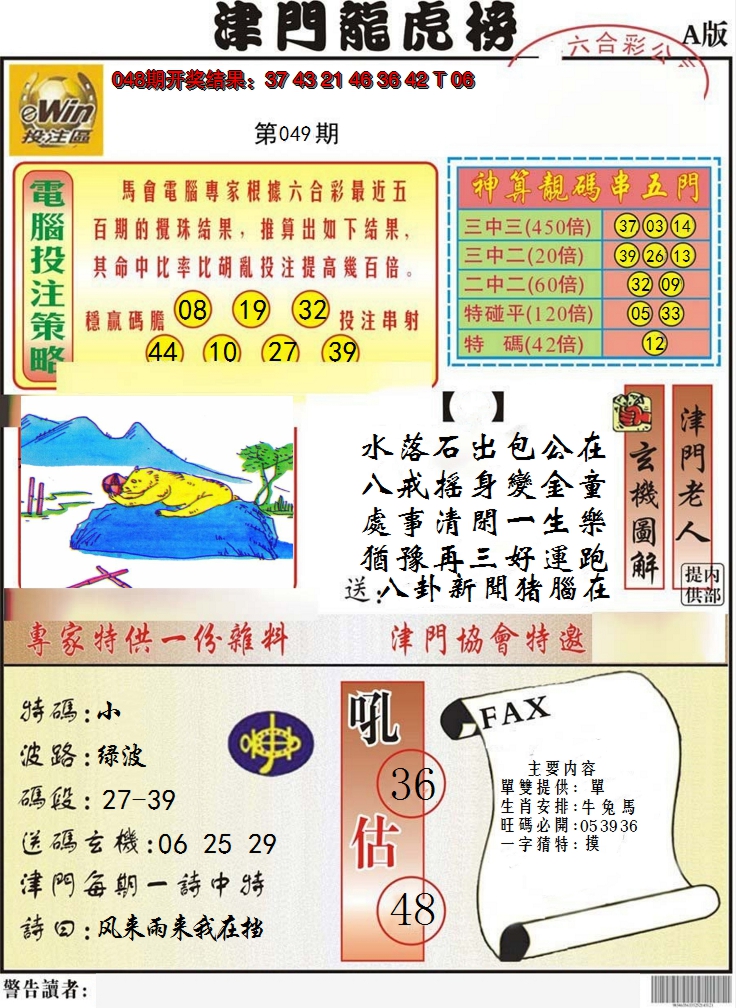 津門龍虎榜
A版
六合彩公
048期开奖结果：37 43 21 46 36 42 T 06
eWin
投注區
第049期
電腦投注策略
馬會電腦專家根據六合彩最近五
百期的攪珠结果，推算出如下结果，
其命中比率比胡亂投注提高幾百倍。
穩贏碼膽 08 19 32 投注串射
44 10 27 39
神算靚碼串五門
三中三(450倍) 37 03 14
三中二(20倍) 39 26 13
二中二(60倍) 32 09
特碰平(120倍) 05 33
特 碼(42倍) 12
【 】
水落石出包公在
八戒摇身變金童
處事清閑一生樂
猶豫再三好運跑
送:八卦新聞猪腦在
玄機圖解
津門老人
内部提供
專家特供一份雜料
津門協會特邀
特碼:小
波路:绿波
碼段:27-39
送碼玄機:06 25 29
津門每期一詩中特
詩曰:风来雨来我在挡
吼
36
估
48
FAX
主要内容
單雙提供: 單
生肖安排:牛兔馬
旺碼必開:053936
一字猜特:摸
警告讀者: